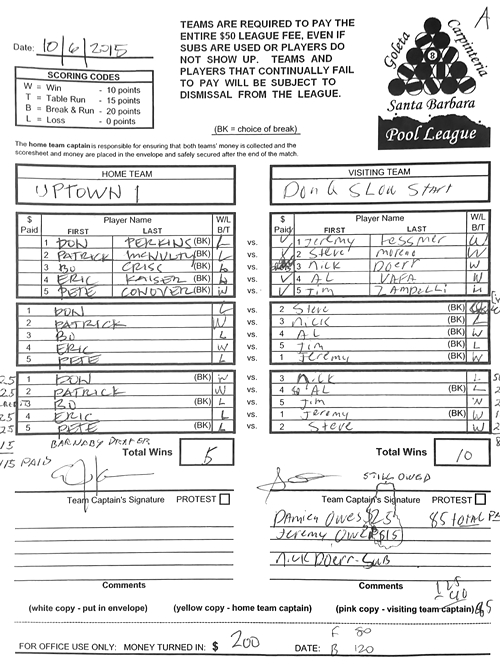 TEAMS ARE REQUIRED TO PAY THE
ENTIRE $50 LEAGUE FEE, EVEN IF
SUBS ARE USED OR PLAYERS DO
NOT SHOW UP. TEAMS AND
PLAYERS THAT CONTINUALLY FAIL
TO PAY WILL BE SUBJECT TO
DISMISSAL FROM THE LEAGUE.
(BK = choice of break)
Date: 10/6/2015
SCORING CODES
W = Win - 10 points
T = Table Run - 15 points
B = Break & Run - 20 points
L = Loss - 0 points
A
Goleta
Carpinteria
8
Santa Barbara
Pool League
The home team captain is responsible for ensuring that both teams' money is collected and the
scoresheet and money are placed in the envelope and safely secured after the end of the match.
HOME TEAM VISITING TEAM
UPTOWN 1 Don & Slow Start
$ Paid Player Name FIRST LAST W/L B/T $ Paid Player Name FIRST LAST W/L B/T
1 DON PERKINS (BK) L vs. 1 Jeremy Lessmer W
2 PATRICK McNULTY (BK) L vs. 2 Steve Moreno W
3 BO CRISC (BK) L vs. 3 Nick Doerr W
4 ERIC KAISER (BK) L vs. 4 AL VAPA W
5 PETE CONOVER (BK) W vs. 5 Jim ZAMPELLI
1 DON L vs. 2 Steve (BK)
2 PATRICK W vs. 3 Nick (BK) L
3 BO L vs. 4 AL (BK) W
4 ERIC W vs. 5 Jim (BK) L
5 PETE L vs. 1 Jeremy (BK) W
1 DON (BK) W vs. 3 Nick L
2 PATRICK W vs. 4 AL (BK) L
3 BO (BK) L vs. 5 Jim W
4 ERIC L vs. 1 Jeremy (BK) W
5 PETE (BK) L vs. 2 Steve W
BARNABY DRAPER
Total Wins 5 Total Wins 10
PAID
STILL OWED
Team Captain's Signature PROTEST Team Captain's Signature PROTEST
Damien Owes $25 85 TOTAL
Jeremy Owes $15
Nick Doerr - Sub
Comments Comments
125
-40
85
(white copy - put in envelope) (yellow copy - home team captain) (pink copy - visiting team captain)
FOR OFFICE USE ONLY: MONEY TURNED IN: $ 200 DATE:
F 80
B 120